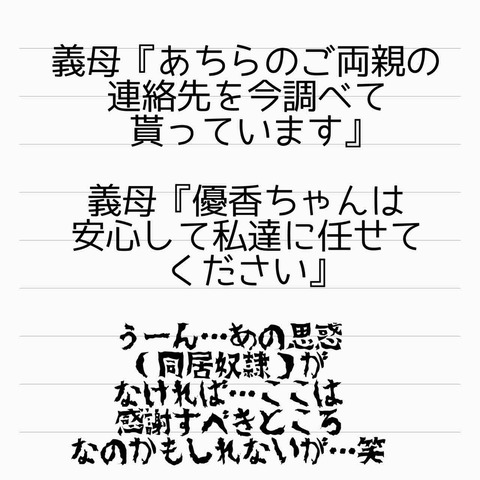 義母『あちらのご両親の
連絡先を今調べて
貰っています』
義母『優香ちゃんは
安心して私達に任せて
ください』
うーん…あの思惑
(同居奴隷)が
なければ…ここは
感謝すべきところ
なのかもしれないが…笑